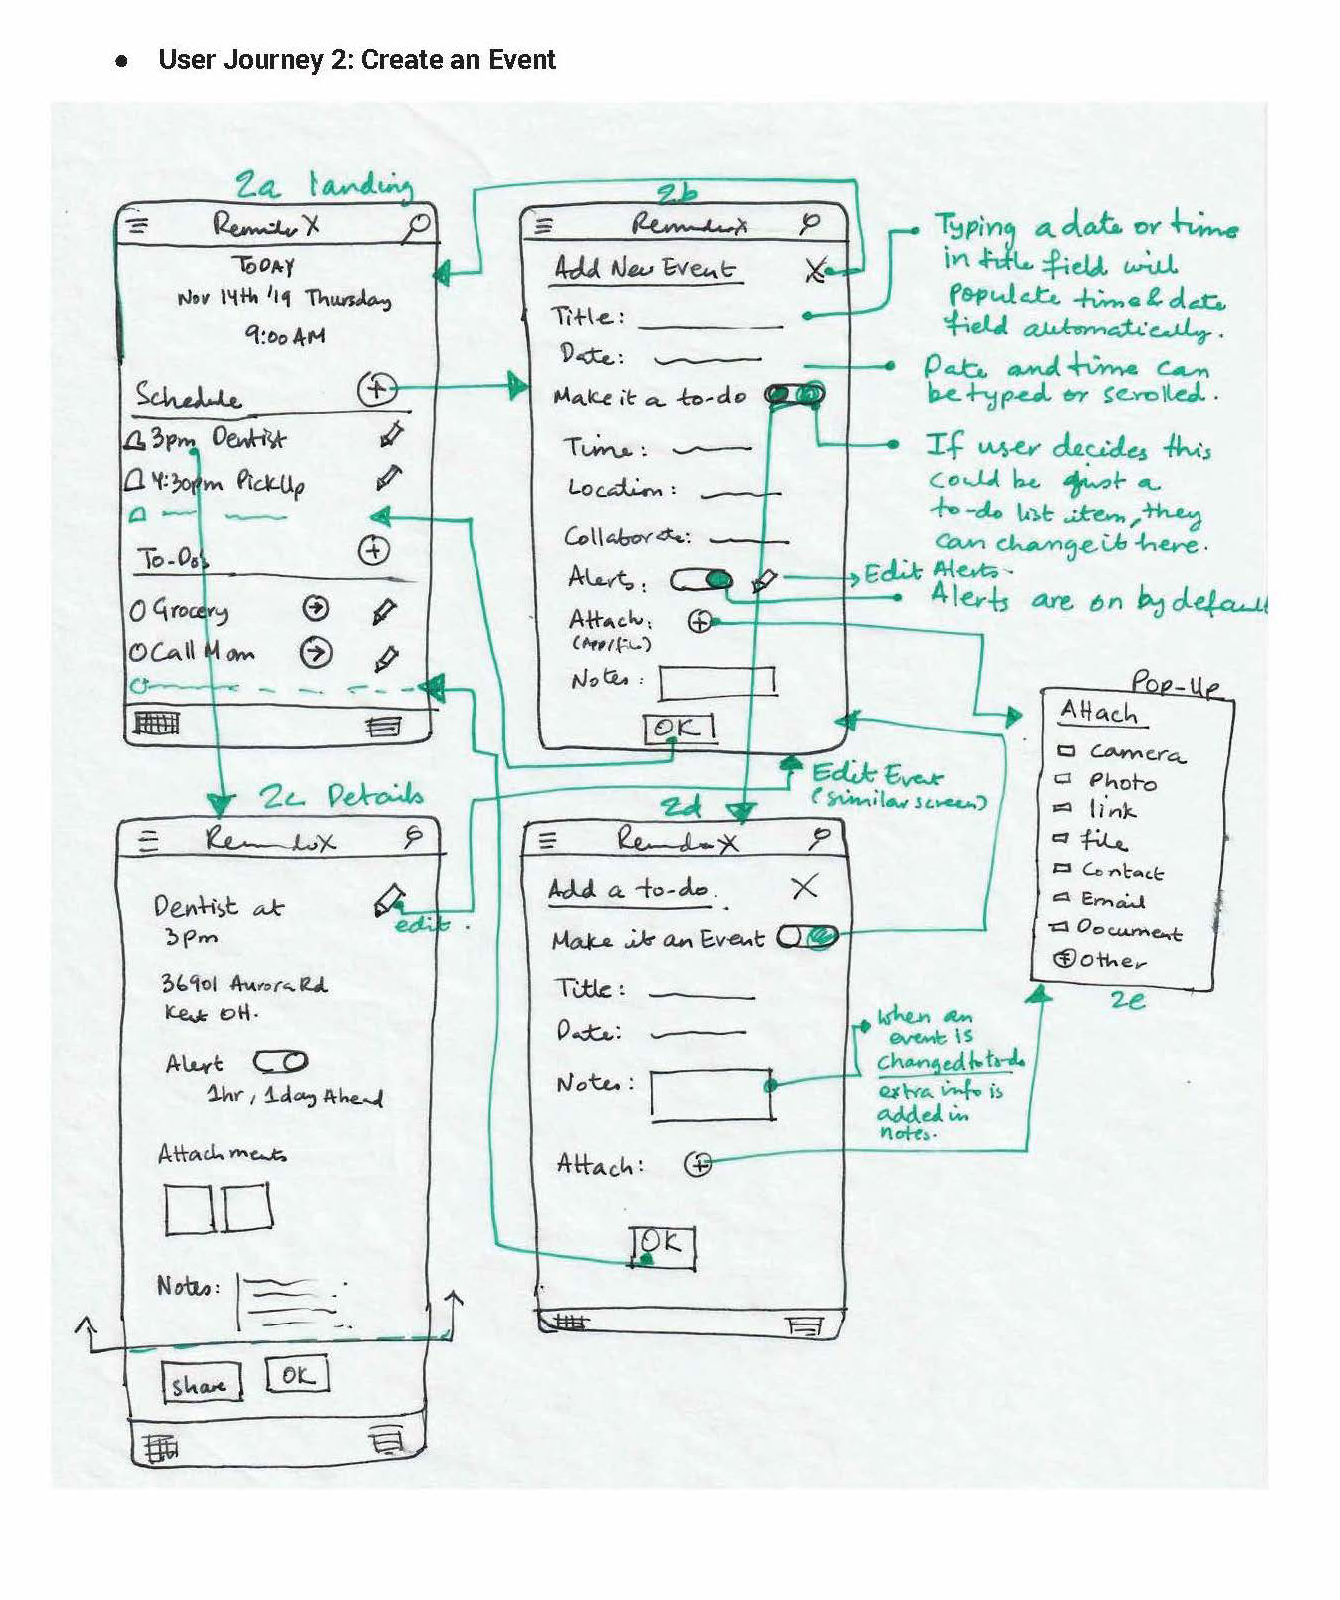 ● User Journey 2: Create an Event
2a landing
RemindoX
TODAY
Nov 14th '19 Thursday
9:00 AM
Schedule
3pm Dentist
4:30pm PickUp
To-Do's
Grocery
Call Mom
2b
RemindoX
Add New Event X
Title:
Date:
Make it a to-do
Time:
Location:
Collaborate:
Alerts:
Attach:
(App/file)
Notes:
OK
Typing a date or time
in title field will
populate time & date
field automatically.
Date and time can
be typed or scrolled.
If user decides this
could be just a
to-do list item, they
can change it here.
Edit Alerts.
Alerts are on by default
Pop-Up
Attach
Camera
Photo
link
file
Contact
Email
Document
Other
2e
Edit Event
(similar screen)
2c Details
RemindoX
Dentist at
3pm
edit.
36901 Aurora Rd
Kent OH.
Alert
1hr, 1day Ahead
Attachments
Notes:
Share
OK
2d
RemindoX
Add a to-do. X
Make it an Event
Title:
Date:
Notes:
Attach:
OK
When an
event is
changed to to-do
extra info is
added in
notes.